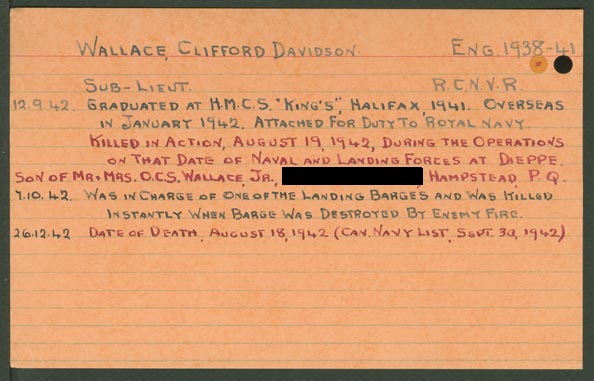 WALLACE, CLIFFORD DAVIDSON. ENG. 1938-41
SUB-LIEUT. R.C.N.V.R.
12.9.42. GRADUATED AT H.M.C.S. "KING'S", HALIFAX, 1941. OVERSEAS
IN JANUARY 1942. ATTACHED FOR DUTY TO ROYAL NAVY.
KILLED IN ACTION, AUGUST 19, 1942, DURING THE OPERATIONS
ON THAT DATE OF NAVAL AND LANDING FORCES AT DIEPPE.
SON OF MR. & MRS. O.C.S. WALLACE, JR., HAMPSTEAD, P.Q.
7.10.42. WAS IN CHARGE OF ONE OF THE LANDING BARGES AND WAS KILLED
INSTANTLY WHEN BARGE WAS DESTROYED BY ENEMY FIRE.
26.12.42 DATE OF DEATH, AUGUST 18, 1942 (CAN. NAVY LIST, SEPT. 30, 1942)